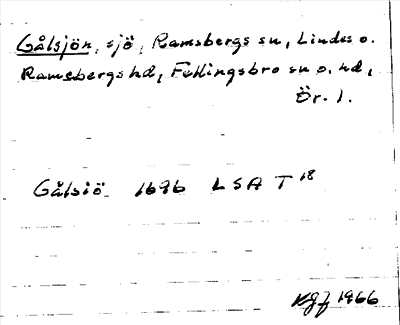 Gålsjön, sjö, Ramsbergs sn, Lindes o.
Ramsbergs hd, Fellingsbro sn o. hd,
Ör. l.
Gålsiö 1696 LSA T 18
KGf 1966